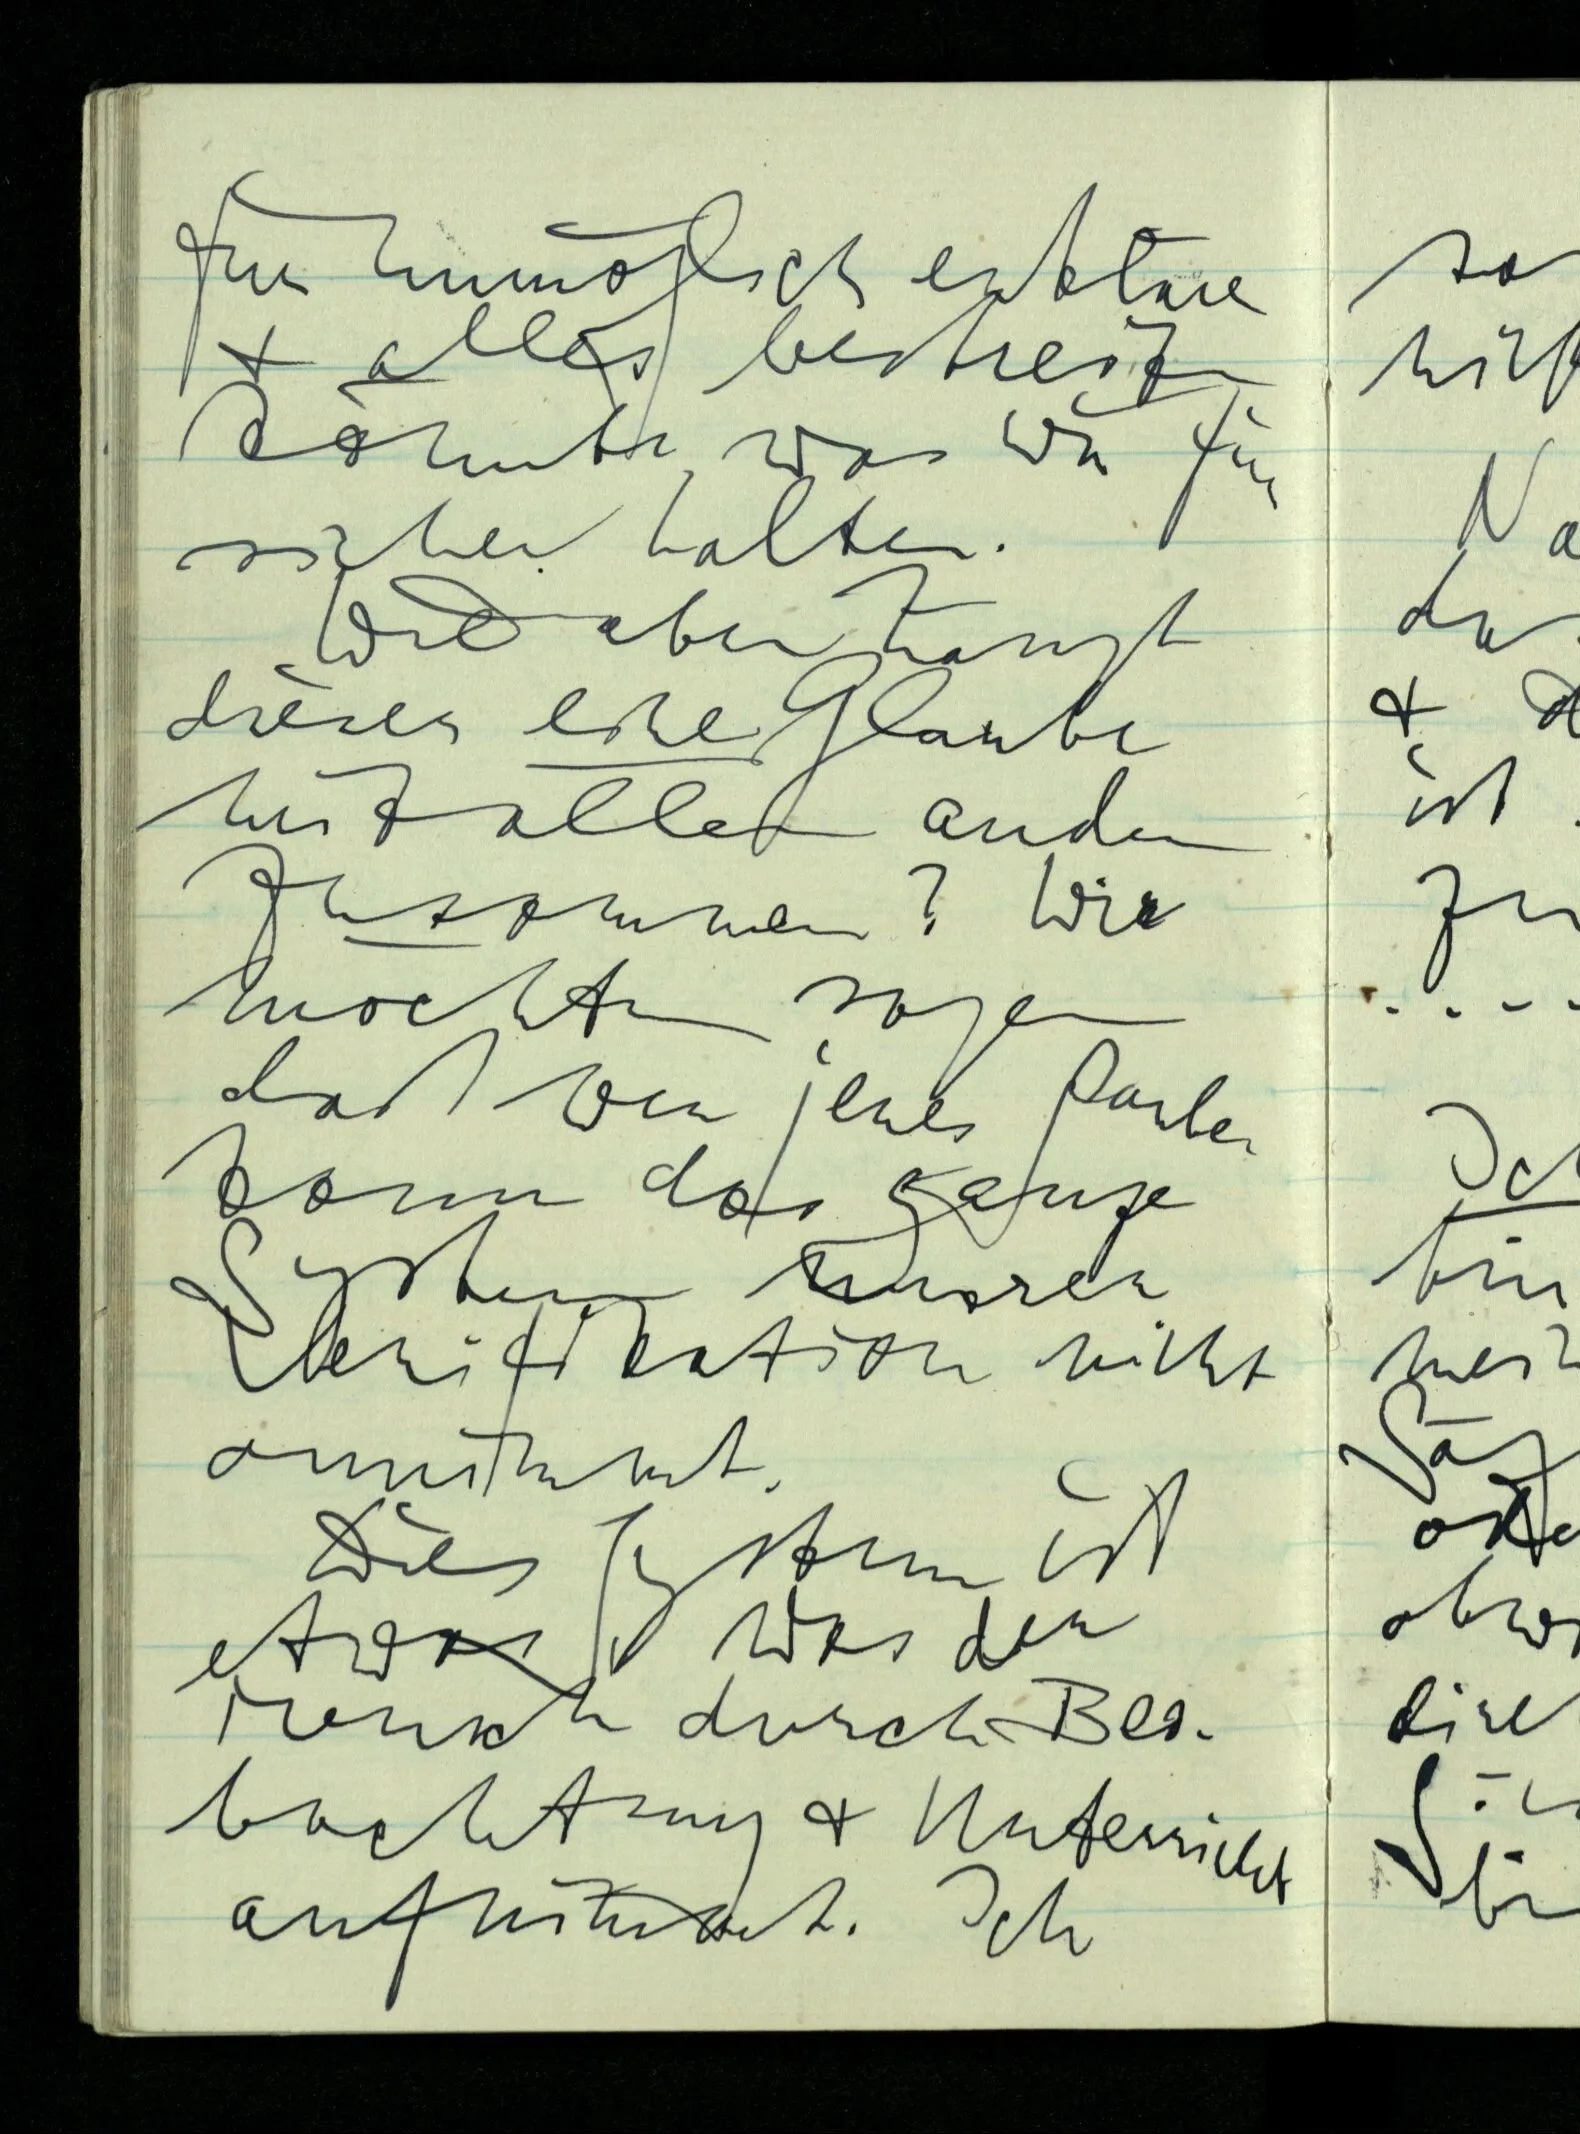 für unmöglich erkläre
& alles bestreiten
könnte, was wir für
sicher halten.
Wie aber hängt
dieser eine Glaube
mit allen andern
zusammen? Wir
möchten sagen
daß wer jenes glauben
kann das ganze
System unsrer
Verifikation nicht
annimmt.
Dies System ist
etwas, was der
Mensch durch Beo-
bachtung & Unterricht
aufnimmt. Ich
sa
Na
ist